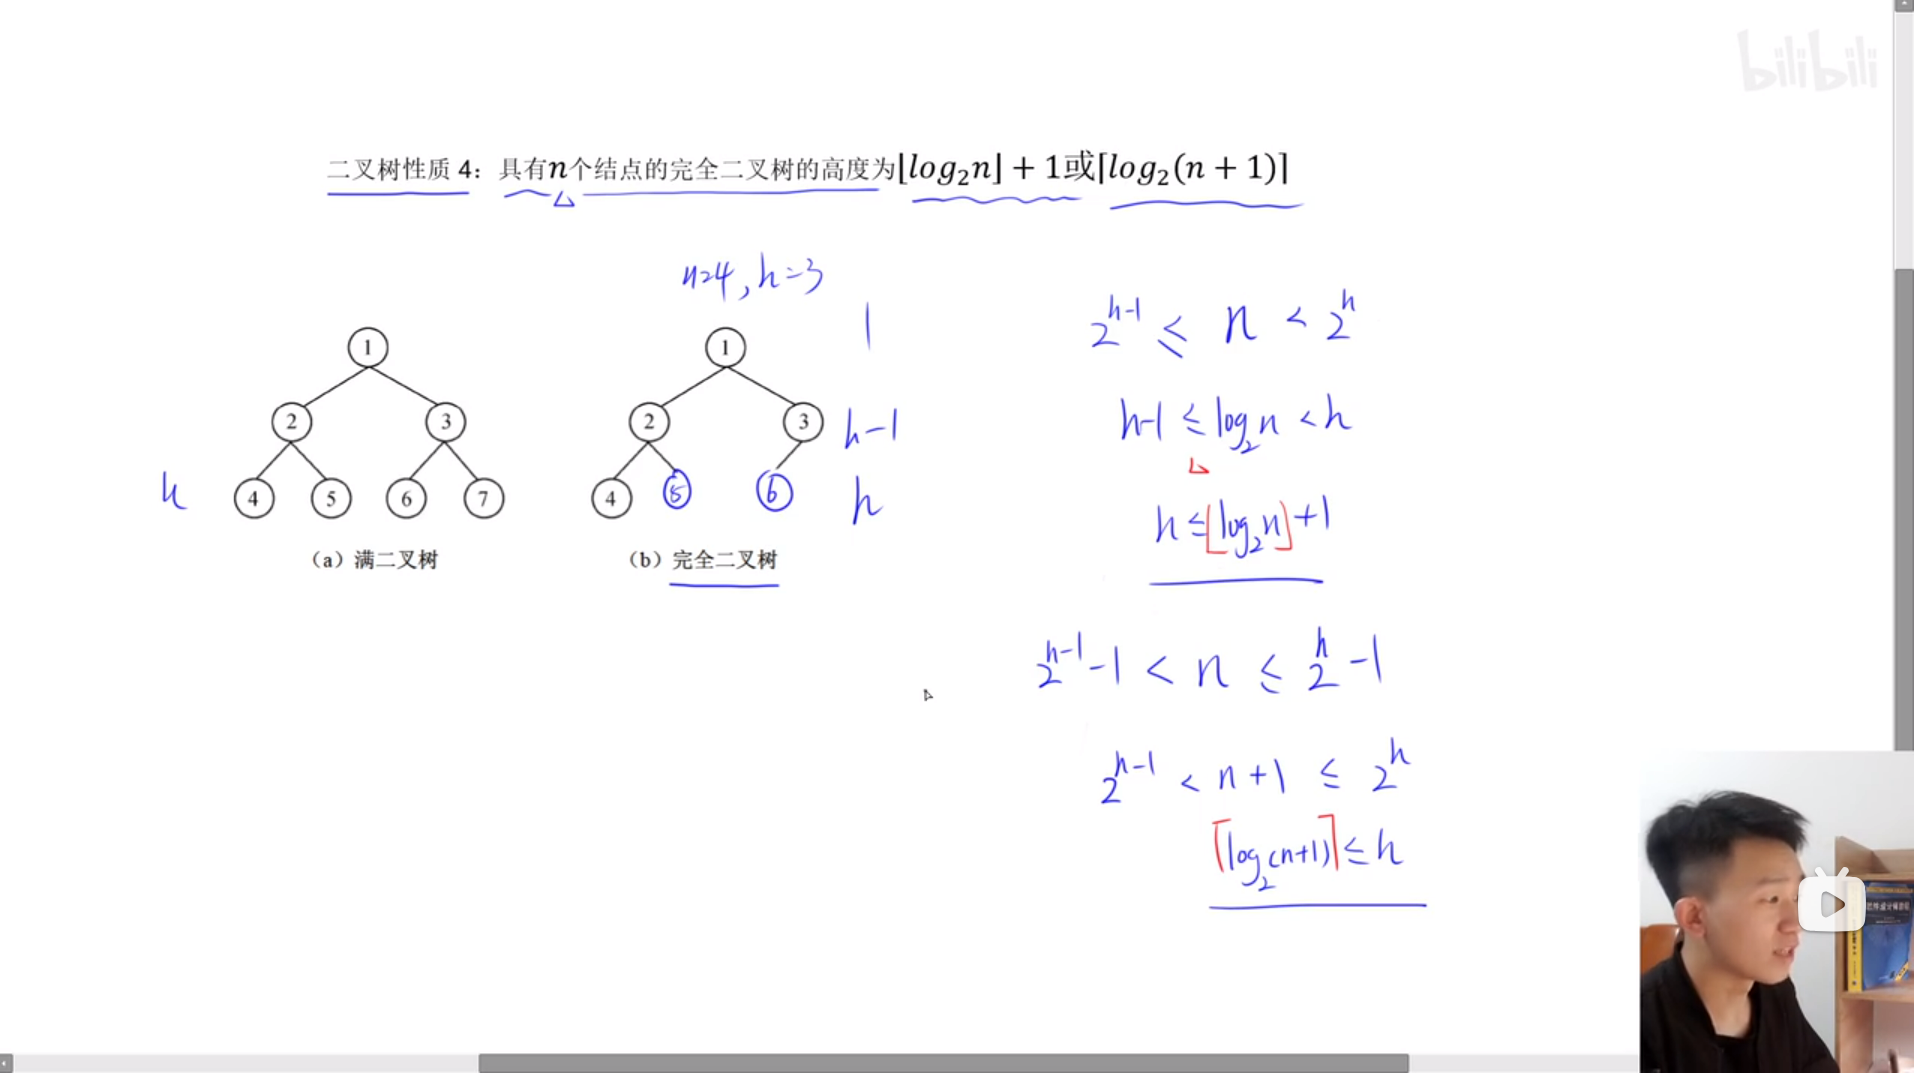 bilibili
二叉树性质 4：具有n个结点的完全二叉树的高度为⌊log₂n⌋ + 1或⌈log₂(n + 1)⌉
n=4, h=3
1
1
2
3
4
5
6
7
h
（a）满二叉树
1
2
3
4
5
6
h-1
h
（b）完全二叉树
2^(h-1) ≤ n < 2^h
h-1 ≤ log₂n < h
h ≤ ⌊log₂n⌋ + 1
2^(h-1) - 1 < n ≤ 2^h - 1
2^(h-1) < n + 1 ≤ 2^h
⌈log₂(n+1)⌉ ≤ h